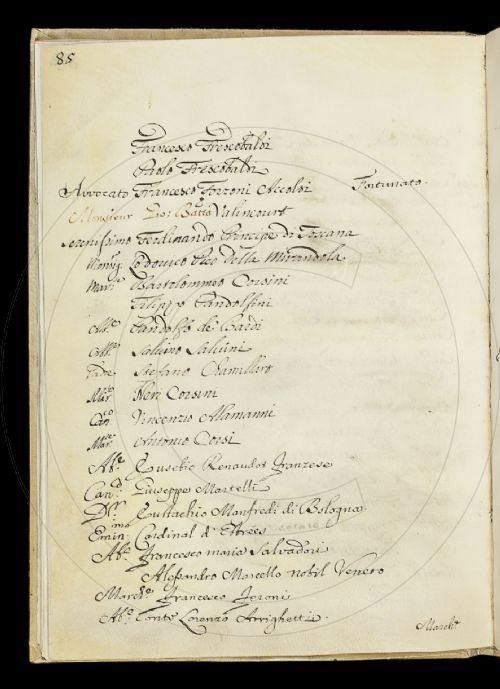 85
Francesco Frescobaldi
Paolo Frescobaldi
Avvocato Francesco Forzoni Accolti Fortunato.
Monsieur Gio: Batta Valincourt
Serenissimo Ferdinando Principe di Toscana
Monsig. Lodovico Pico della Mirandola
Mar.e Bartolommeo Corsini
Filippo Pandolfini
Ab.e Pandolfo de Bardi
Ab.e Salvino Salvini
Padre Stefano Chamilliro
Mar. Neri Corsini
Can.co Vincenzio Alamanni
Mar.e Antonio Corsi
Ab.e Eusebio Renaudot franzese
Can.o Giuseppe Martelli
D.r Eustachio Manfredi di Bologna
Emin.mo Cardinal d'Etrees
Ab.e Francesco maria Salvadori
Alessandro Marcello nobil Veneto
March.e Francesco Feroni
Ab.e Conte Lorenzo Arrighetti.
March.e